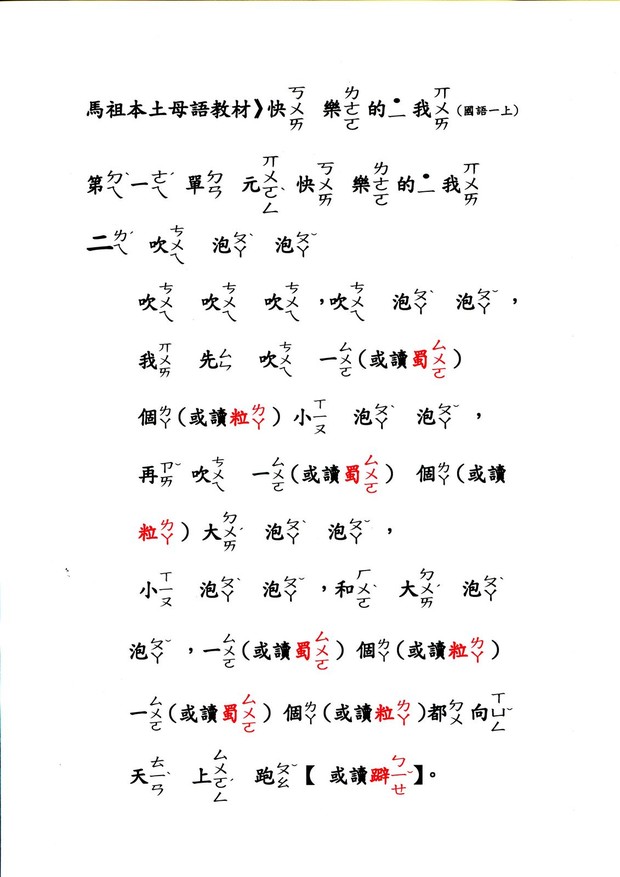 馬祖本土母語教材》快ㄎㄨㄞ 樂ㄌㄜㄛ 的˙ㄧ 我ㄫㄨㄞ(國語一上)
第ㄉㄟˋ一ㄜㄟˊ 單ㄉㄢ 元ㄫㄨㄛˋㄥ 快ㄎㄨㄞ 樂ㄌㄜㄛ 的˙ㄧ 我ㄫㄨㄞ
二ㄌㄟˊ 吹ㄘㄨㄟ 泡ㄆㄚˋ 泡ㄆㄚ
吹ㄘㄨㄟ 吹ㄘㄨㄟ 吹ㄘㄨㄟ,吹ㄘㄨㄟ 泡ㄆㄚˋ 泡ㄆㄚˇ,
我ㄫㄨㄞ 先ㄙㄣ 吹ㄘㄨㄟ 一ㄙㄨㄛ(或讀蜀ㄙㄨㄛ)
個ㄌㄚ(或讀粒ㄌㄚ)小ㄒㄧㄡ 泡ㄆㄚˋ 泡ㄆㄚˇ,
再ㄗㄞˇ 吹ㄘㄨㄟ 一ㄙㄨㄛ(或讀蜀ㄙㄨㄛ) 個ㄌㄚ(或讀
粒ㄌㄚ)大ㄉㄨㄞˊ 泡ㄆㄚˋ 泡ㄆㄚˇ,
小ㄒㄧㄡ 泡ㄆㄚˋ 泡ㄆㄚˇ,和ㄏㄨㄛˋ 大ㄉㄨㄞˊ 泡ㄆㄚˋ
泡ㄆㄚˇ,一ㄙㄨㄛ(或讀蜀ㄙㄨㄛ) 個ㄌㄚ(或讀粒ㄌㄚ)
一ㄙㄨㄛ(或讀蜀ㄙㄨㄛ) 個ㄌㄚ(或讀粒ㄌㄚ)都ㄉㄨ 向ㄒㄩㄥˇ
天ㄊㄧㄢˋ 上ㄙㄨㄛˊㄥ 跑ㄆㄠˇ【 或讀躃ㄅㄧㄝˇ】。